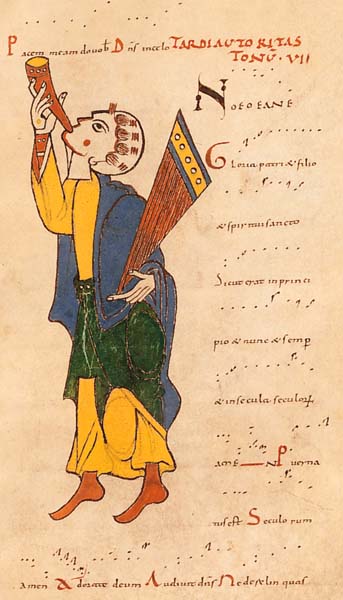 Pacem meam do vob Dns in celo TARDI AUTORITAS
TONU. VII
NOEOEANE
Gloria patri & filio
& spiritui sancto
Sicut erat in princi
pio & nunc & semp
& in secula seculorum
amE—N Puer na
tus est Seculo rum
amen Adorate deum Audiuit dns Ne derelin quas